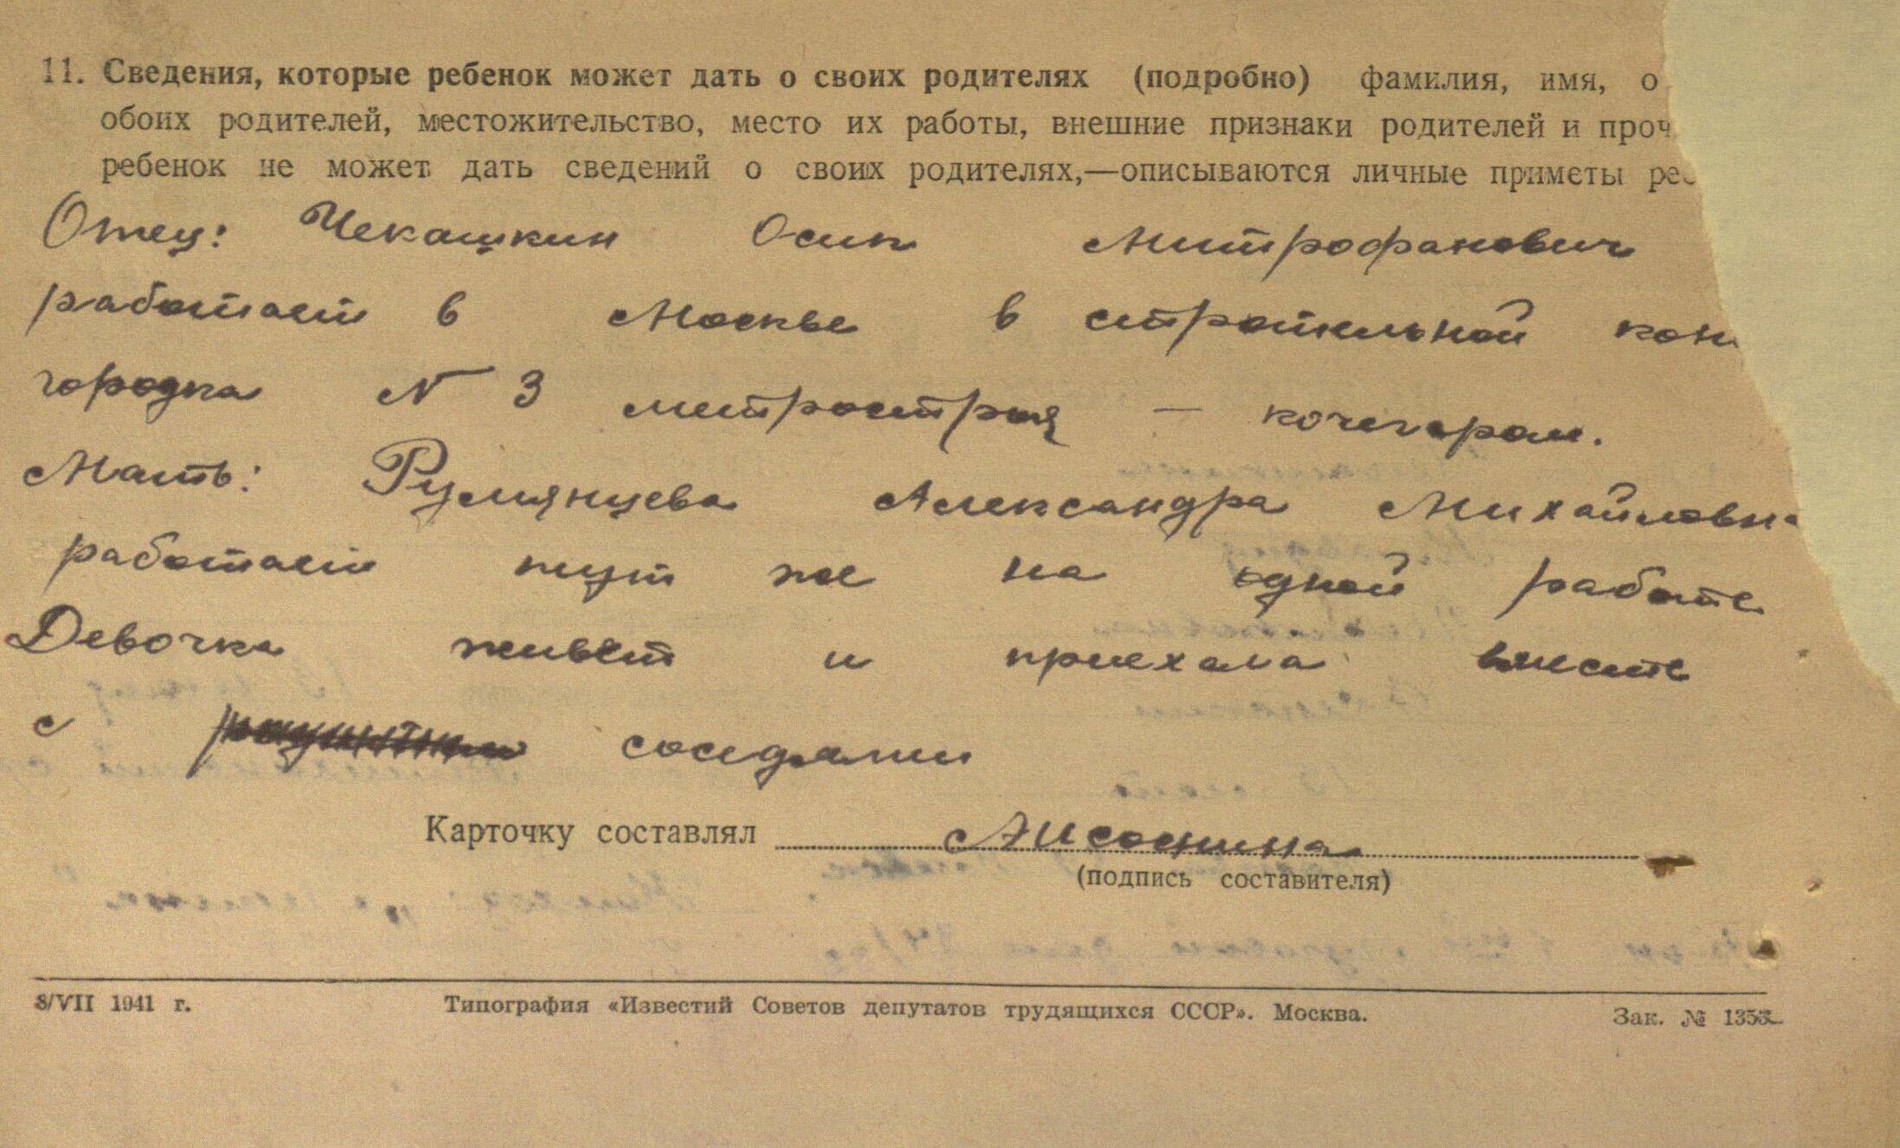 11. Сведения, которые ребенок может дать о своих родителях (подробно) фамилия, имя, о
обоих родителей, местожительство, место их работы, внешние признаки родителей и проч
ребенок не может дать сведений о своих родителях,—описываются личные приметы реб
Отец: Чекашкин Осип Митрофанович
работает в Москве в стротильной кон
городка N 3 метростроя — кочегаром.
Мать: Румянцева Александра Михайловна
работает тут же на одной работе
Девочка живет и приехала вместе
с соседями
Карточку составлял
(подпись составителя)
8/VII 1941 г. Типография «Известий Советов депутатов трудящихся СССР». Москва. Зак. № 1353